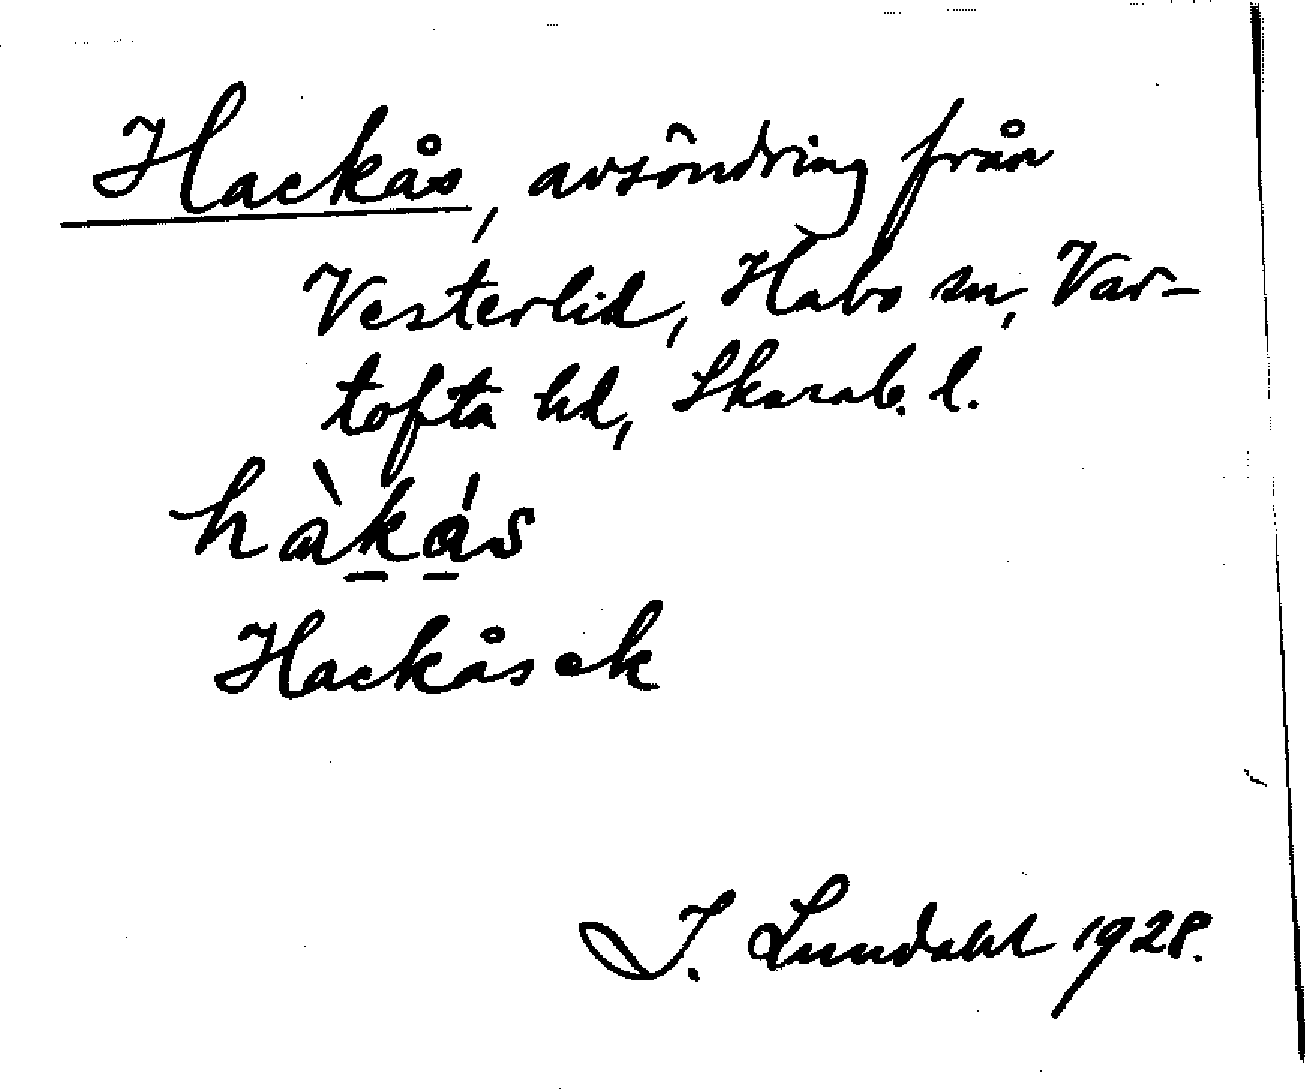 Hackås, avsöndring från
Vesterlid, Habo sn, Var-
tofta hd, Skarab. l.
hàkás
Hackåsek
I. Lundahl 1928.